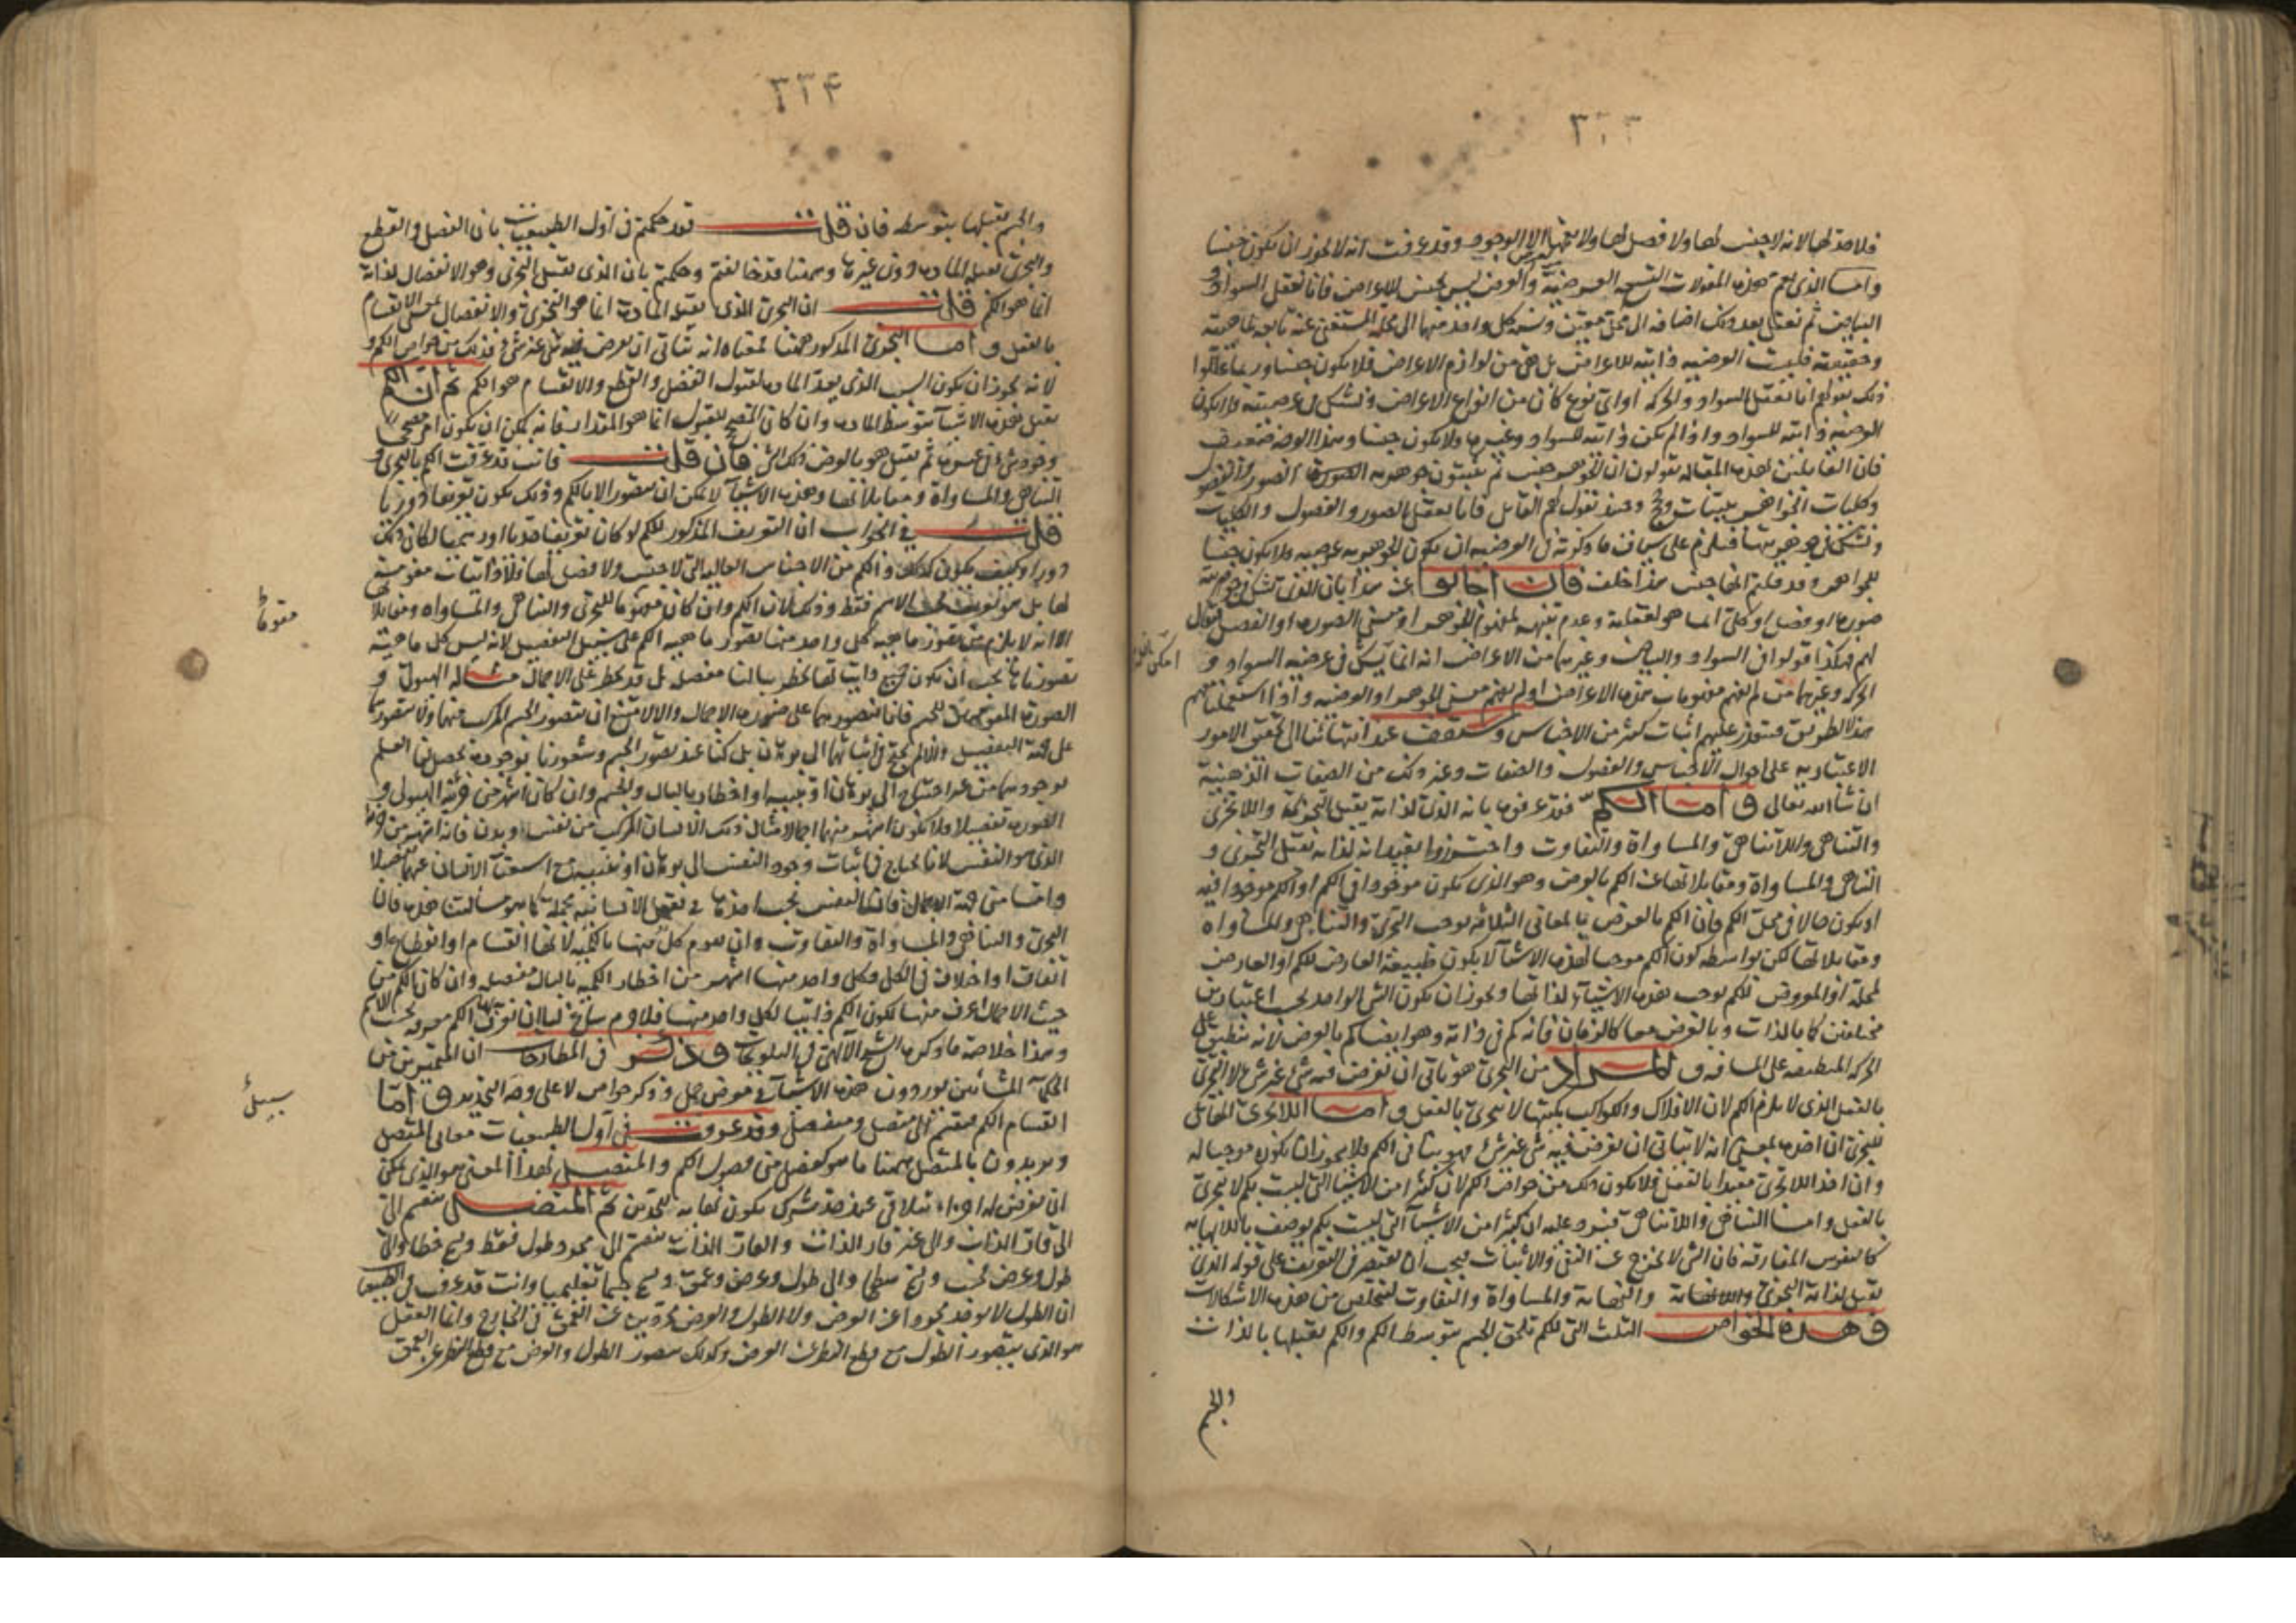 ٣٣٣
فلا حد لها لانه لا جنس لها ولا فصل لها ولا يعمها الا الوجود وقد عرفت انه لا يجوز ان يكون جنسا
واما الذى يعم هذه المقولات التسعه العرضية والعرض ليس بجنس للاعراض فانا نعقل السواد و
البياض ثم نعقل بعد ذلك اضافه الى محل معين ونسبة كل واحد منها الى محله المستغنى عنه تابعه لماهيته
وحقيقته فليست العرضيه ذاتيه للاعراض بل هى من لوازم الاعراض فلا يكون جنسا وربما عللوا
ذلك بقولهم انا نعقل السواد والحركه او اى نوع كان من انواع الاعراض ونشك فى عرضيته فلا يكون
العرضيه ذاتيه للسواد واذا لم يكن ذاتيه للسواد وغيره فلا يكون جنسا وهذا الوجه ضعيف
فان القايلين بهذه المقاله يقولون ان الجوهر جنس ثم يثبتون جوهريه الصور والفصول
وكليات الجواهر ببينات وحجج وحينئذ نقول لهم القايل فانا نعقل الصور والفصول والكليات
ونشك فى جوهريتها فيلزم على سياق ما ذكرتم فى العرضيه ان يكون الجوهريه عرضيه ولا يكون جنسا
للجواهر وقد قلتم انها جنس هذا خلف فان احالوا عن هذا بان الذى شك فى جوهريه
صوره او فصل او كلى انما هو لغفلته وعدم تنبهه لمفهوم الجوهر او معنى الصوره او الفصل فيقال
لهم فهكذا قولوا فى السواد والبياض وغيرها من الاعراض انه انما يشك فى عرضيه السواد و
الحركه وغيرهما من لم يفهم مفهومات هذه الاعراض او لم يفهم معنى الجوهر او العرضيه واذا استعملتم
هذا الطريق فيتعذر عليهم اثبات كثير من الاجناس وستقف عند انتهائنا الى تحقق الامور
الاعتباريه على احوال الاجناس والفصول والصفات وغير ذلك من الصفات الذهنية
ان شاء الله تعالى واما الكم فقد عرفوه بانه الذى لذاته يقبل التجزى واللاتجزى
والتناهى واللاتناهى والمساواة والتفاوت واحترزوا بقيد انه لذاته يقبل التجزى و
التناهى والمساواة ومقابلاتها عن الكم بالعرض وهو الذى يكون موجودا فى الكم او الكم موجودا فيه
او يكون حالا فى محل الكم فان الكم بالعرض بالمعانى الثلاثه يوجب التجزى والتناهى والمساواه
ومقابلاتها لكن بواسطه كون الكم موجبا لهذه الاشيآ لا يكون طبيعة العارض للكم او العارض
لمحله او المعروض للكم يوجب هذه الاشيآ لذاتها ويجوز ان يكون الشى الواحد بحسب اعتبارين
مختلفين كما بالذات وبالعرض معا كالزمان فانه كم فى ذاته وهو ايضا كم بالعرض لانه ينطبق على
الحركه المنطبقه على المسافه والمراد من التجزى هو تاتى ان يفرض فيه شى غير شى لا التجزى
بالفعل الذى لا يلزم الكم لان الافلاك والكواكب بكميتها لا يتجزى بالفعل واما اللاتجزى المقابل
للتجزى ان اخذ بمعنى انه لا يتاتى ان يفرض فيه شى غير شى فهو ينافى الكم فلا يجوز ان يكون موجبا له
وان اخذ اللاتجزى مقيدا بالفعل فلا يكون ذلك من خواص الكم لان كثيرا من الاشيآ التى ليست بكم لا تتجزى
بالفعل واما التناهى واللاتناهى فيرد عليه ان كثيرا من الاشيآ التى ليست بكم يوصف باللانهايه
كالنفوس المفارقه فان الشى لا يخرج عن النفى والاثبات فيجب ان يقتصر فى التعريف على قوله الذى
يقبل لذاته التجزى واللانهاية والنهاية والمساواة والتفاوت لنتخلص من هذه الاشكالات
وهذه الخواص الثلث التى للكم تلحق الجسم بتوسط الكم والكم يقبلها بالذات
والجسم
امكن
٣٣۴
والجسم يقبلها بتوسطه فان قلت قد حكمتم فى اول الطبيعيات بان الفصل والقطع
والتجزى يقبل الماده دون غيرها وهيهنا قد خالفتم وحكمتم بان الذى يقبل التجزى وهو الانفصال لذاته
انما هو الكم قلت ان التجزى الذى يقبله الماده انما هو التجزى والانفصال على الانقسام
بالفعل واما التجزى المذكور هيهنا فمعناه انه يتاتى ان يعرض فيه شى غير شى فذلك من خواص الكم و
لانه يجوز ان يكون السبب الذى يعد الماده لقبول الفصل والقطع والانقسام هو الكم ثم ان الكم
يقبل هذه الاشيآ بتوسط الماده وان كان المصحح للقبول انما هو المقدار فانه يمكن ان يكون امر مصححا
وجود شى فى غيره ثم يقبل هو بالعرض ذلك الشى فان قلت فانت قد عرفت الكم بالتجزى و
التناهى والمساواة ومقابلاتها وهذه الاشيآ لا يمكن ان يتصور الا بالكم وذلك يكون تعريفا دوريا
قلت فى الجواب ان التعريف المذكور للكم لو كان تعريفا حديا او رسميا لكان ذلك
دورا وكيف يكون كذلك والكم من الاجناس العاليه التى لا جنس ولا فصل لها فلا ذاتيات مقومة
لها بل هو تعريف بحسب الاسم فقط وذلك لان الكم وان كان مقوما للتجزى والتناهى والمساواه ومقابلاتها
الا انه لا يلزم من تصور ماهيه كل واحد منها تصور ماهيه الكم على سبيل التفصيل لانه ليس كل ماهية
تصورناها يجب ان يكون جميع ذاتياتها تخطر ببالنا مفصله بل قد يخطر على الاجمال مثاله الهيولى و
الصورة المقومتان للجسم فانا نتصورهما على ضرب من الاجمال والا لامتنع ان نتصور الجسم المركب منهما ولا نتصورهما
على جهة التفصيل والا لم نحتج فى اثباتهما الى برهان بل كنا عند تصور الجسم وشعورنا بوجوده يحصل لنا العلم
بوجودهما من غير احتياج الى برهان او تنبيه او اخطار بالبال والجسم وان كان اشهر من جزئه الهيولى و
الصوره تفصيلا ولا يكون اشهر منهما اجمالا مثال ذلك الانسان المركب من نفس وبدن فانه اشهر من جزئه
الذى هو النفس لانا نحتاج فى اثبات وجود النفس الى برهان او تنبيه
واما من جهة الاجمال فان النفس يجب اخذها فى تعقل الانسانيه مجمله كما هو مسألتنا هذه فان
التجزى والتناهى والمساواة والتفاوت وان تقوم كل منها بالكميه لانها انقسام او انقطاع او
اتفاق او اختلاف فى الكل وكل واحد منها اشهر من اخطار الكمية بالبال مفصله وان كان الكم من
حيث الاجمال اعرف منها لكون الكم ذاتيا لكل واحد منها
وهذا خلاصة ما ذكره الشيخ الالهى فى التلويحات وقد ذكر فى المطارحات ان المعتبرين من
الحكمآء المشائين يوردون هذه الاشيآ فى معرض جمل وذكر خواص لا على وجه التحديد واما
اقسام الكم فينقسم الى متصل ومنفصل وقد عرفت فى اول الطبيعيات معانى المتصل
ويريدون بالمتصل هيهنا ما هو كفصل من فصول الكم والمتصل بهذا المعنى هو الذى يمكن
ان يفرض له اجزاء تتلاقى عند حد مشترك يكون نهاية للجزئين ثم المتصل ينقسم الى
الى قار الذات والى غير قار الذات والقار الذات ينقسم الى مجرد طول فقط ويسمى خطا والى
طول وعرض فحسب ويسمى سطحا والى طول وعرض وعمق ويسمى جسما تعليميا وانت قد عرفت فى الطبيعيات
ان الطول لا يوجد مجردا عن العرض ولا الطول والعرض مجردين عن العمق فى الخارج وانما العقل
هو الذى يتصور الطول مع قطع النظر عن العرض وكذلك يتصور الطول والعرض مع قطع النظر عن العمق
مقوما
سبيل